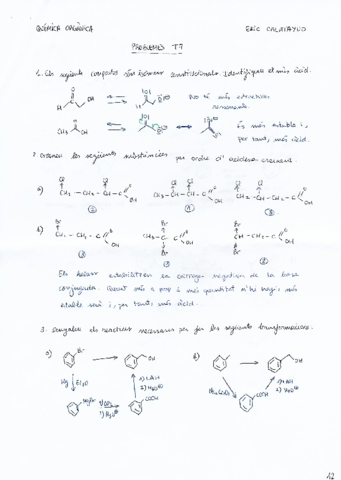 QUÍMICA ORGÀNICA
ERIC CALATAYUD
PROBLEMES T7
1. Els següents compostos són isòmers constitucionals. Identifiqueu el més àcid.
OH
No té més estructures
ressonants.
CH₃ OH
És més estable i,
per tant, més àcid.
2. Ordeneu les següents substàncies per ordre d'acidesa creixent.
a)
Cl Cl
CH₂-CH₂-CH-C
OH
b)
Br
CH₂-CH₂-C
OH
Els halurs estabilitzen la càrrega negativa de la base
conjugada. Quant més a prop i més quantitat n'hi hagi, més
estable serà i, per tant, més àcid.
3. Empleneu els reactius necessaris per fer les següents transformacions.
a)
Br
OH
Mg Et₂O
1) LAH
2) H₃O⊕
MgBr
1) CO₂
2) H₃O⊕
COOH
b)
OH
1) LAH
2) H₃O⊕
COOH
12